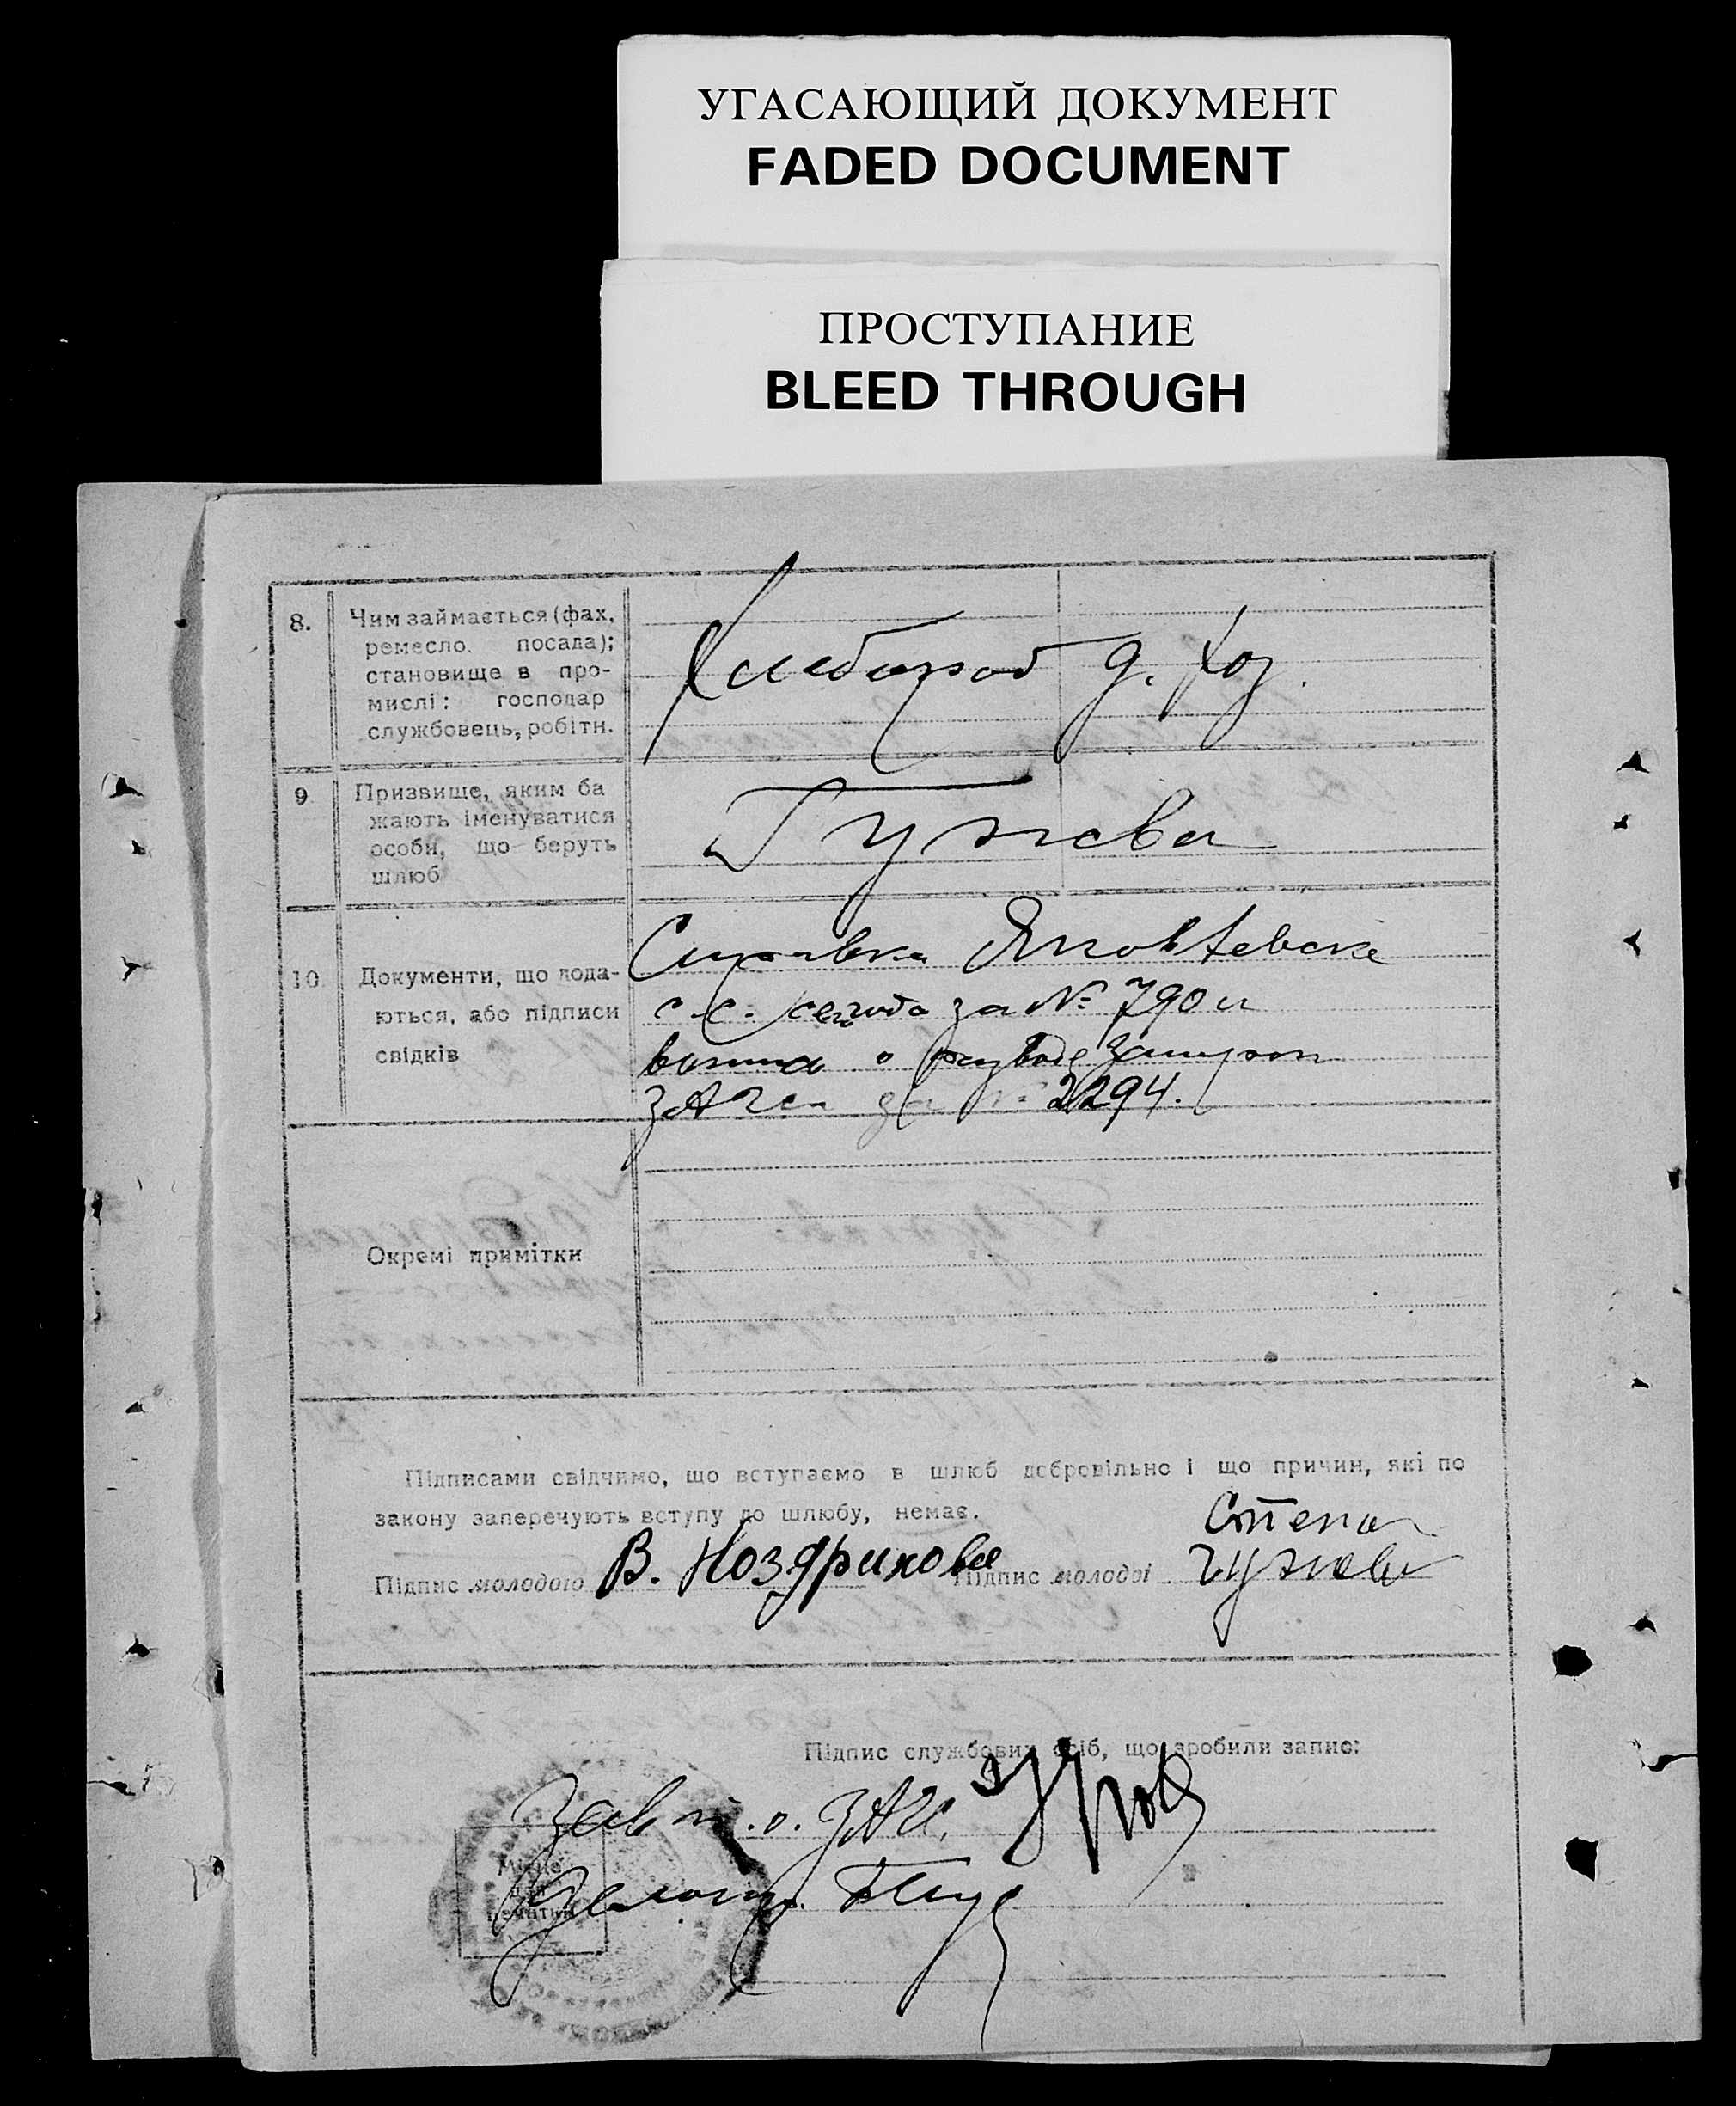 УГАСАЮЩИЙ ДОКУМЕНТ
FADED DOCUMENT
ПРОСТУПАНИЕ
BLEED THROUGH
8.
Чим займається (фах,
ремесло, посада);
становище в про-
мислі: господар
службовець, робітн.
Хлебороб д. хоз.
9
Призвище, яким ба
жають іменуватися
особи, що беруть
шлюб
Гужева
10.
Документи, що пода-
ються, або підписи
свідків
Справка
с-с. за № 790 и
о разводе
ЗАГСа за № 2294.
Окремі примітки
Підписами свідчимо, що вступаємо в шлюб добровільно і що причин, які по
закону заперечують вступу до шлюбу, немає.
Підпис молодою В. Ноздрихова Підпис молодої Степан
Гужева
Підпис службових осіб, що зробили запис:
Зав
Місце
печатки